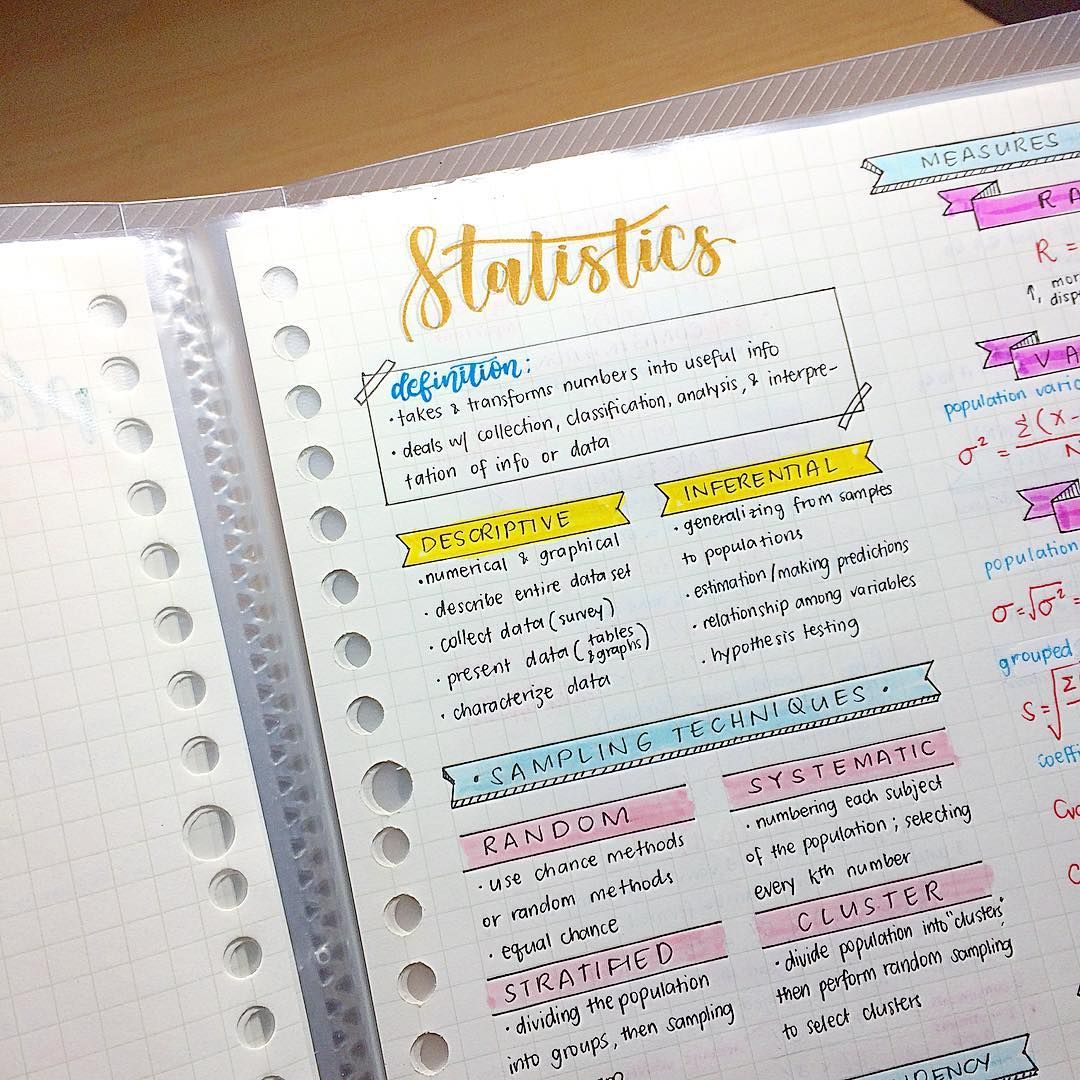 Statistics
definition:
• takes & transforms numbers into useful info
• deals w/ collection, classification, analysis, & interpre-
tation of info or data
DESCRIPTIVE
• numerical & graphical
• describe entire data set
• collect data (survey)
• present data (tables & graphs)
• characterize data
INFERENTIAL
• generalizing from samples
to populations
• estimation/making predictions
• relationship among variables
• hypothesis testing
• SAMPLING TECHNIQUES •
RANDOM
• use chance methods
or random methods
• equal chance
SYSTEMATIC
• numbering each subject
of the population ; selecting
every kth number
STRATIFIED
• dividing the population
into groups, then sampling
CLUSTER
• divide population into "clusters"
then perform random sampling
to select clusters
MEASURES
RA
R =
↑, mor
disp
VA
population varia
σ² = Σ(X -
N
population
σ = √σ² =
grouped
S = √Σ
coeffi
CVa
C